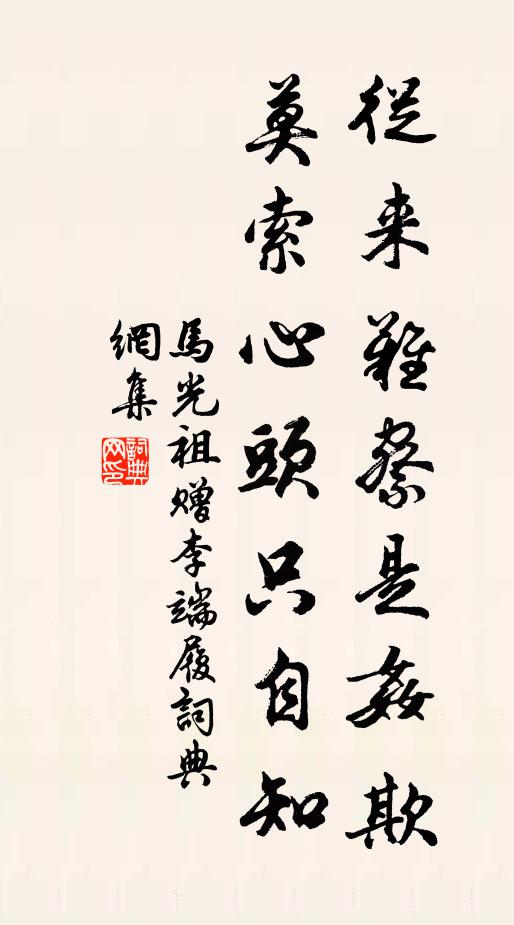 從来難察是姦欺
莫索心頭只自知
馬光祖赠李端履詞典
網集
詞典网印